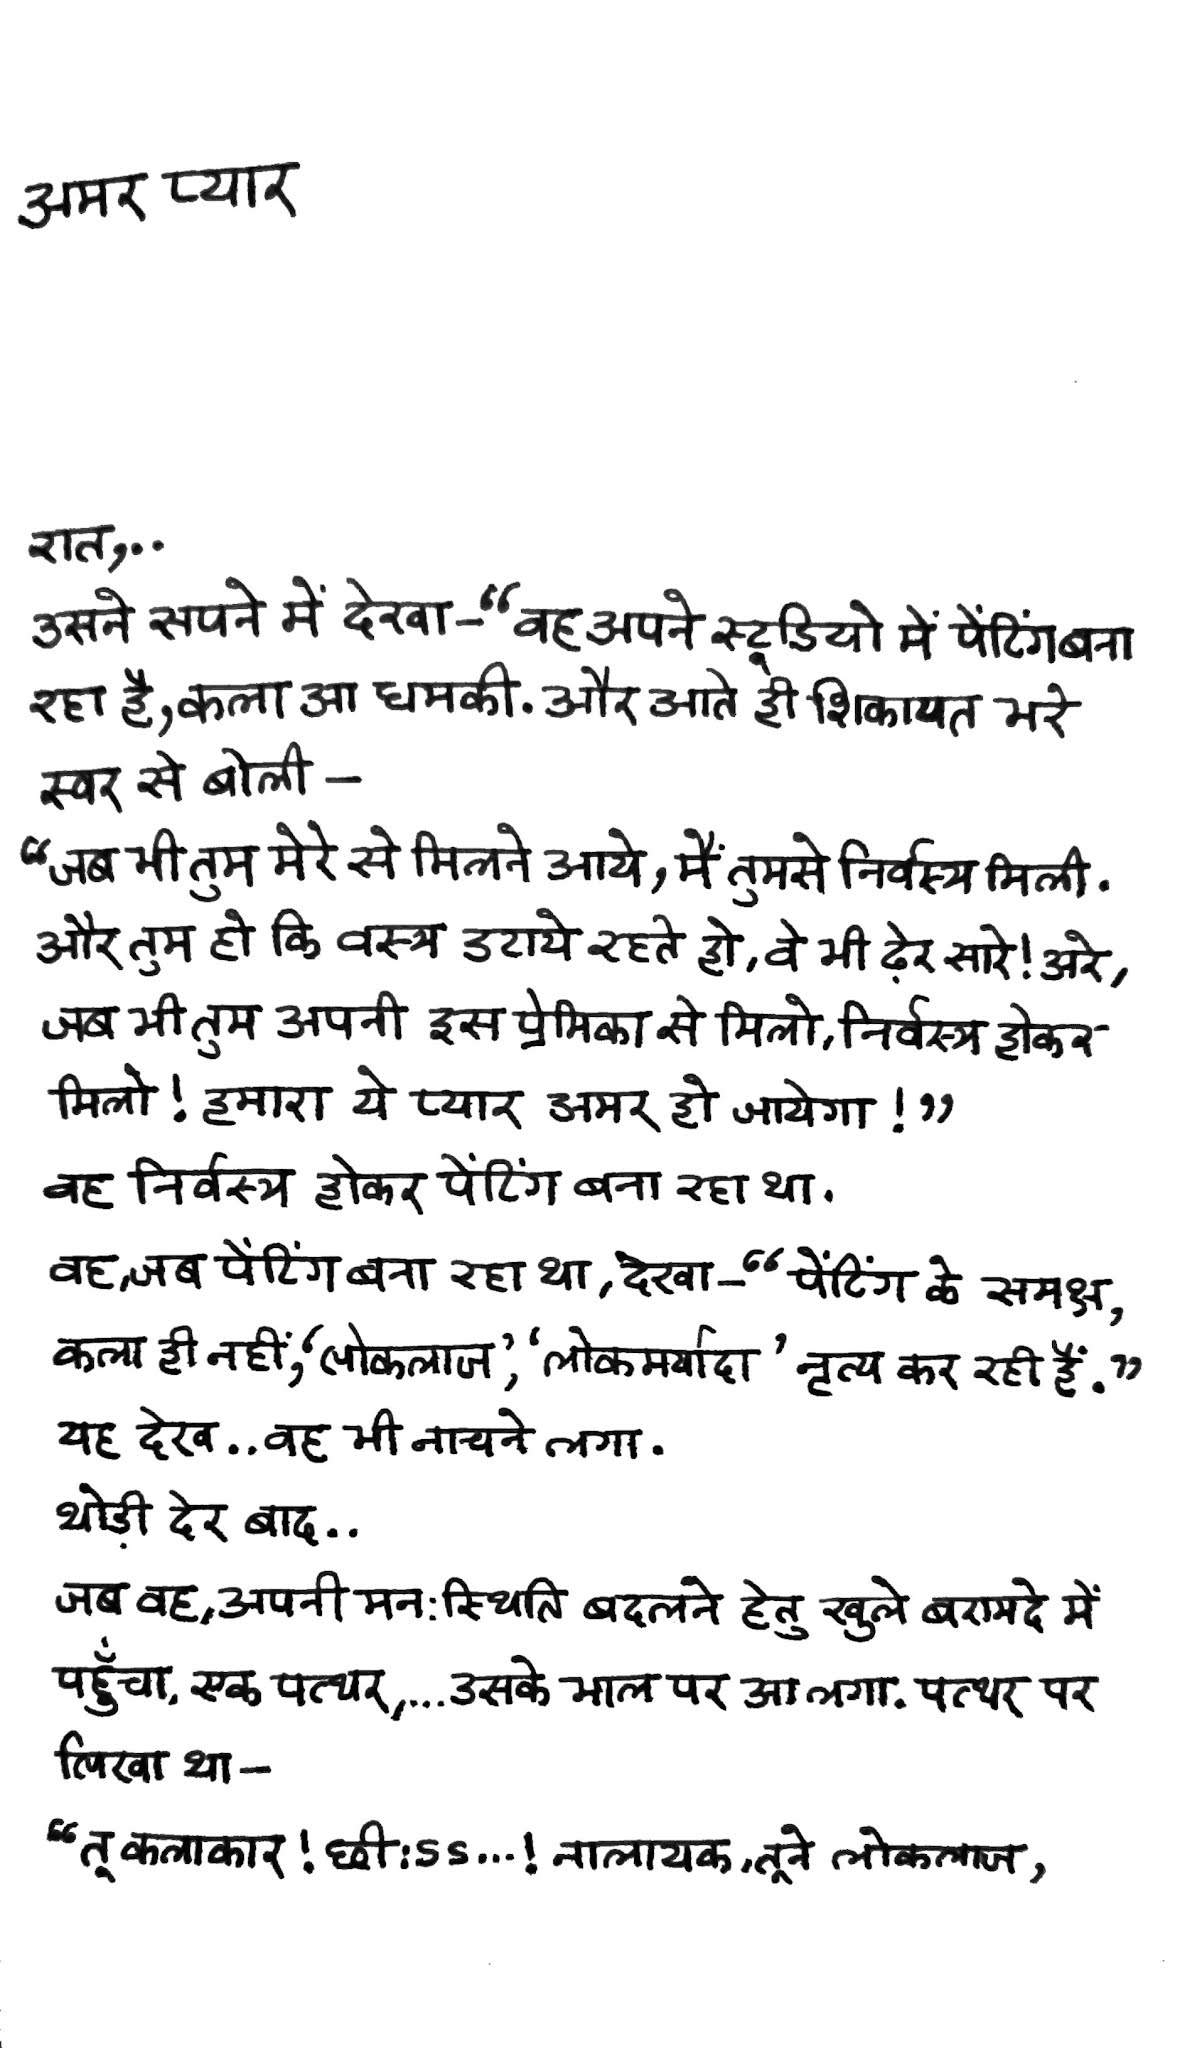 अमर प्यार
रात,..
उसने सपने में देखा-“वह अपने स्टूडियो में पेंटिंग बना
रहा है, कला आ धमकी. और आते ही शिकायत भरे
स्वर से बोली -
“जब भी तुम मेरे से मिलने आये, मैं तुमसे निर्वस्त्र मिली.
और तुम हो कि वस्त्र डटाये रहते हो, वे भी ढ़ेर सारे! अरे,
जब भी तुम अपनी इस प्रेमिका से मिलो, निर्वस्त्र होकर
मिलो! हमारा ये प्यार अमर हो जायेगा!”
वह निर्वस्त्र होकर पेंटिंग बना रहा था.
वह, जब पेंटिंग बना रहा था, देखा-“पेंटिंग के समक्ष,
कला ही नहीं, ‘लोकलाज’, ‘लोकमर्यादा’ नृत्य कर रही हैं.”
यह देख.. वह भी नाचने लगा.
थोड़ी देर बाद..
जब वह, अपनी मन:स्थिति बदलने हेतु खुले बरामदे में
पहुँचा, एक पत्थर,... उसके भाल पर आ लगा. पत्थर पर
लिखा था -
“तू कलाकार! छी:ऽऽ...! नालायक, तूने लोकलाज,